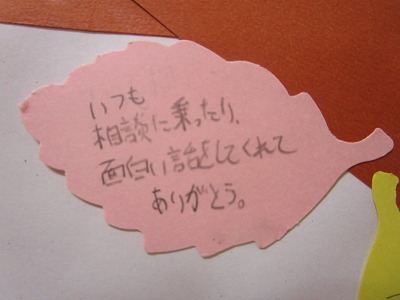 いつも
相談に乗ったり、
面白い話をしてくれて
ありがとう。